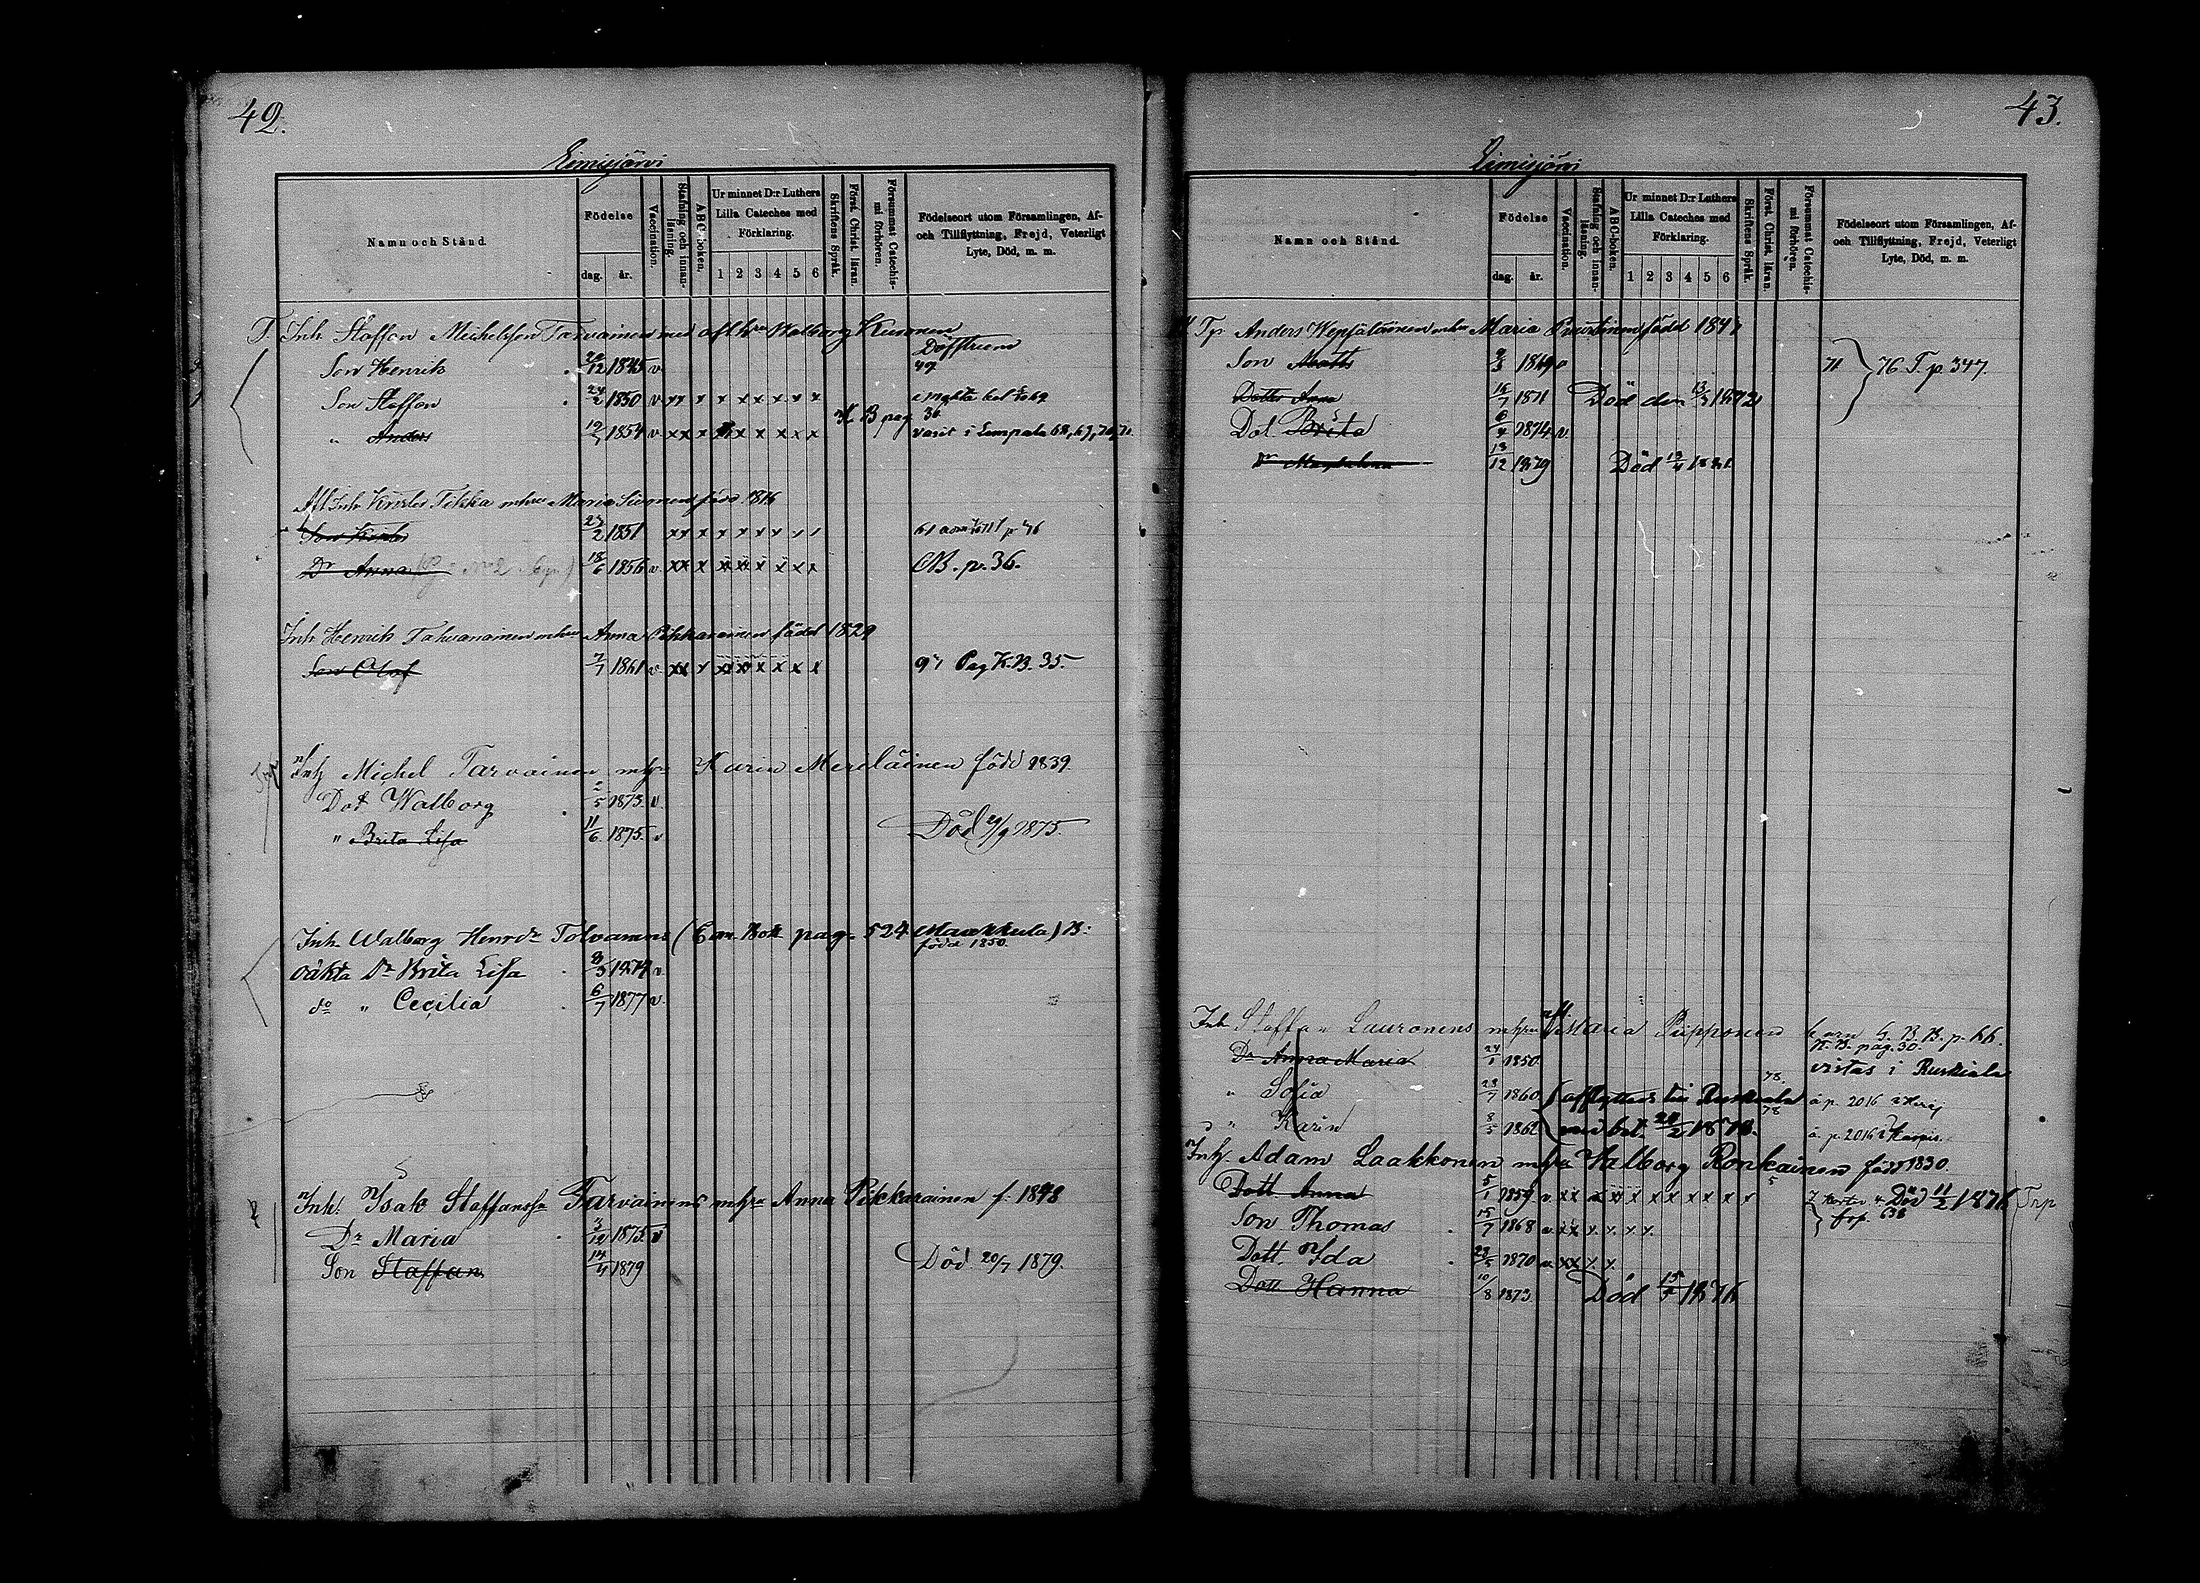 42.
Eimisjärvi
Namn och Stånd.
Födelse
dag. år.
Vaccination.
Stafning och innanläsning.
A B C-boken.
Ur minnet D:r Luthers Lilla Cateches med Förklaring.
1 2 3 4 5 6
Skriftens Språk.
Först. Christ. läran.
Försummat Catechismi förhören.
Födelseort utom Församlingen, Af- och Tillflyttning, Frejd, Veterligt Lyte, Död, m. m.
T. Inh. Staffan Michelsson Tarvainen med afl. hru Walborg Kuronen
Son Henrik 20/12 1845 v.
Son Staffan 24/2 1850 v. xx x x x x x x x
" Anders 19/5 1854 v xx x x x x x x x K B pag 36 varit i Lempala 68, 69, 70, 71
Afl Inh. Krister Tikka mhru Maria Sivonen född 1816
Son Krister 27/2 1851 xx x x x x x
Dr Anna 18/6 1856 v. xx x x x x x x x CB. p. 36.
Inh Henrik Tahvanainen mhru Anna Pikkarainen född 1829
Son Olof 7/7 1861 v. xx x x x x x x x Pag K.B. 35.
Inh Michel Tarvainen mhru Karin Meriläinen född 1839.
Dot Walborg 2/5 1873. v.
" Brita Lisa 11/6 1875. v Död 29/9 1875.
Inh Walborg Henrdr Tolvanen (Com. Bok pag. 524 Maukkula) B:
född 1850.
oäkta Dr Brita Lisa 8/3 1874 v.
do " Cecilia 6/7 1877 v.
Inh. Isak Staffanssn Tarvainen mhru Anna Pikkarainen f. 1848
Dr Maria 3/12 1875 v
Son Staffan 14/4 1879 Död 20/7 1879.
43.
Eimisjärvi
Namn och Stånd.
Födelse
dag. år.
Vaccination.
Stafning och innanläsning.
A B C-boken.
Ur minnet D:r Luthers Lilla Cateches med Förklaring.
1 2 3 4 5 6
Skriftens Språk.
Först. Christ. läran.
Försummat Catechismi förhören.
Födelseort utom Församlingen, Af- och Tillflyttning, Frejd, Veterligt Lyte, Död, m. m.
Tp Anders Wepsäläinen mhru Maria Puustinen född 184
Son Matts 9/3 1869 v 71 } 76 T. p. 347.
Dotter Anna 16/7 1871 Död den 13/3 1872
Dot. Brita 6/4 1874 v.
Dr Magdalena 13/12 1879 Död 13/4 1881
Inh Staffan Lauronens mhru afl. Maria Piipponen barn G. B. B. p. 66.
K. B. pag. 30.
Dr Anna Maria 24/1 1850 vistas i Ruskiala
" Sofia 23/7 1860 { afflyttade till Ruskiala 78.
" Karin 8/5 1862 med bet. 28/2 1878.
Inh. Adam Laakkonen mhru Walborg Ronkainen född 1830.
Dott Anna 5/1 1859 v. xx x x x x x x x x Död 11/2 1876 Trp
Son Thomas 15/7 1868 v. x x x x x x
Dott. Ida 23/5 1870 v. xx x x
Dott Hanna 10/8 1873 Död 15/5 1876